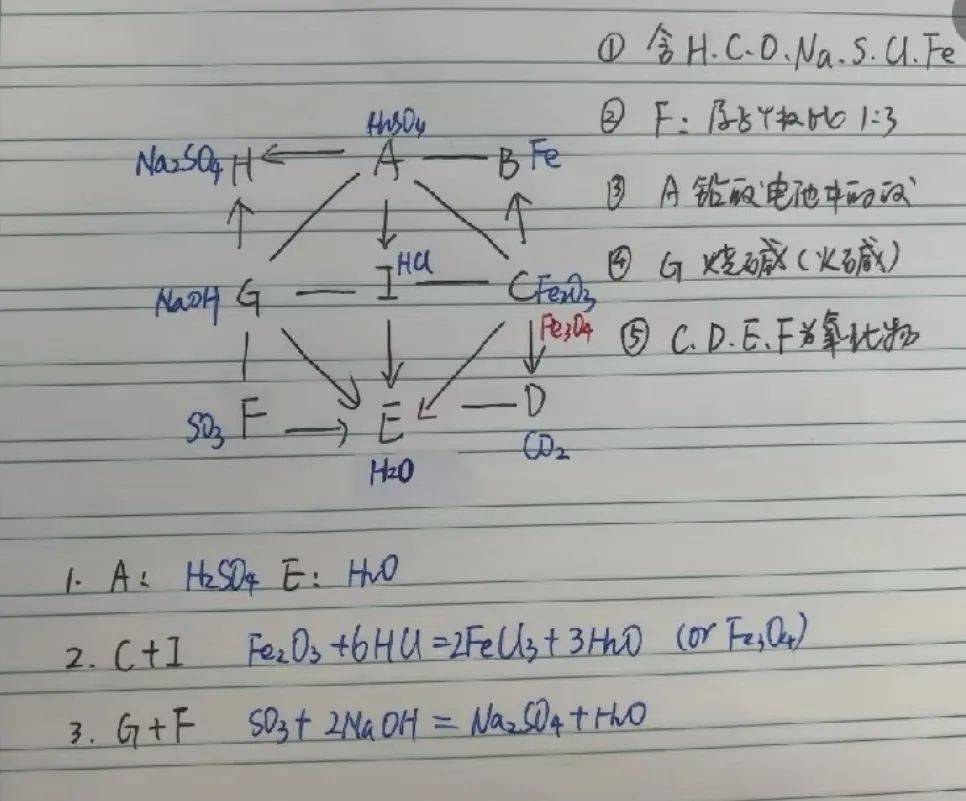 ① 含H.C.O.Na.S.Cl.Fe
② F: 原子个数比 1:3
③ A 铅酸电池中的酸
④ G 烧碱(火碱)
⑤ C.D.E.F为氧化物
H2SO4
Na2SO4 H A B Fe
NaOH G I HCl C Fe2O3
Fe3O4
SO3 F E D
H2O CO2
1. A: H2SO4 E: H2O
2. C+I Fe2O3+6HCl=2FeCl3+3H2O (or Fe3O4)
3. G+F SO3+2NaOH=Na2SO4+H2O